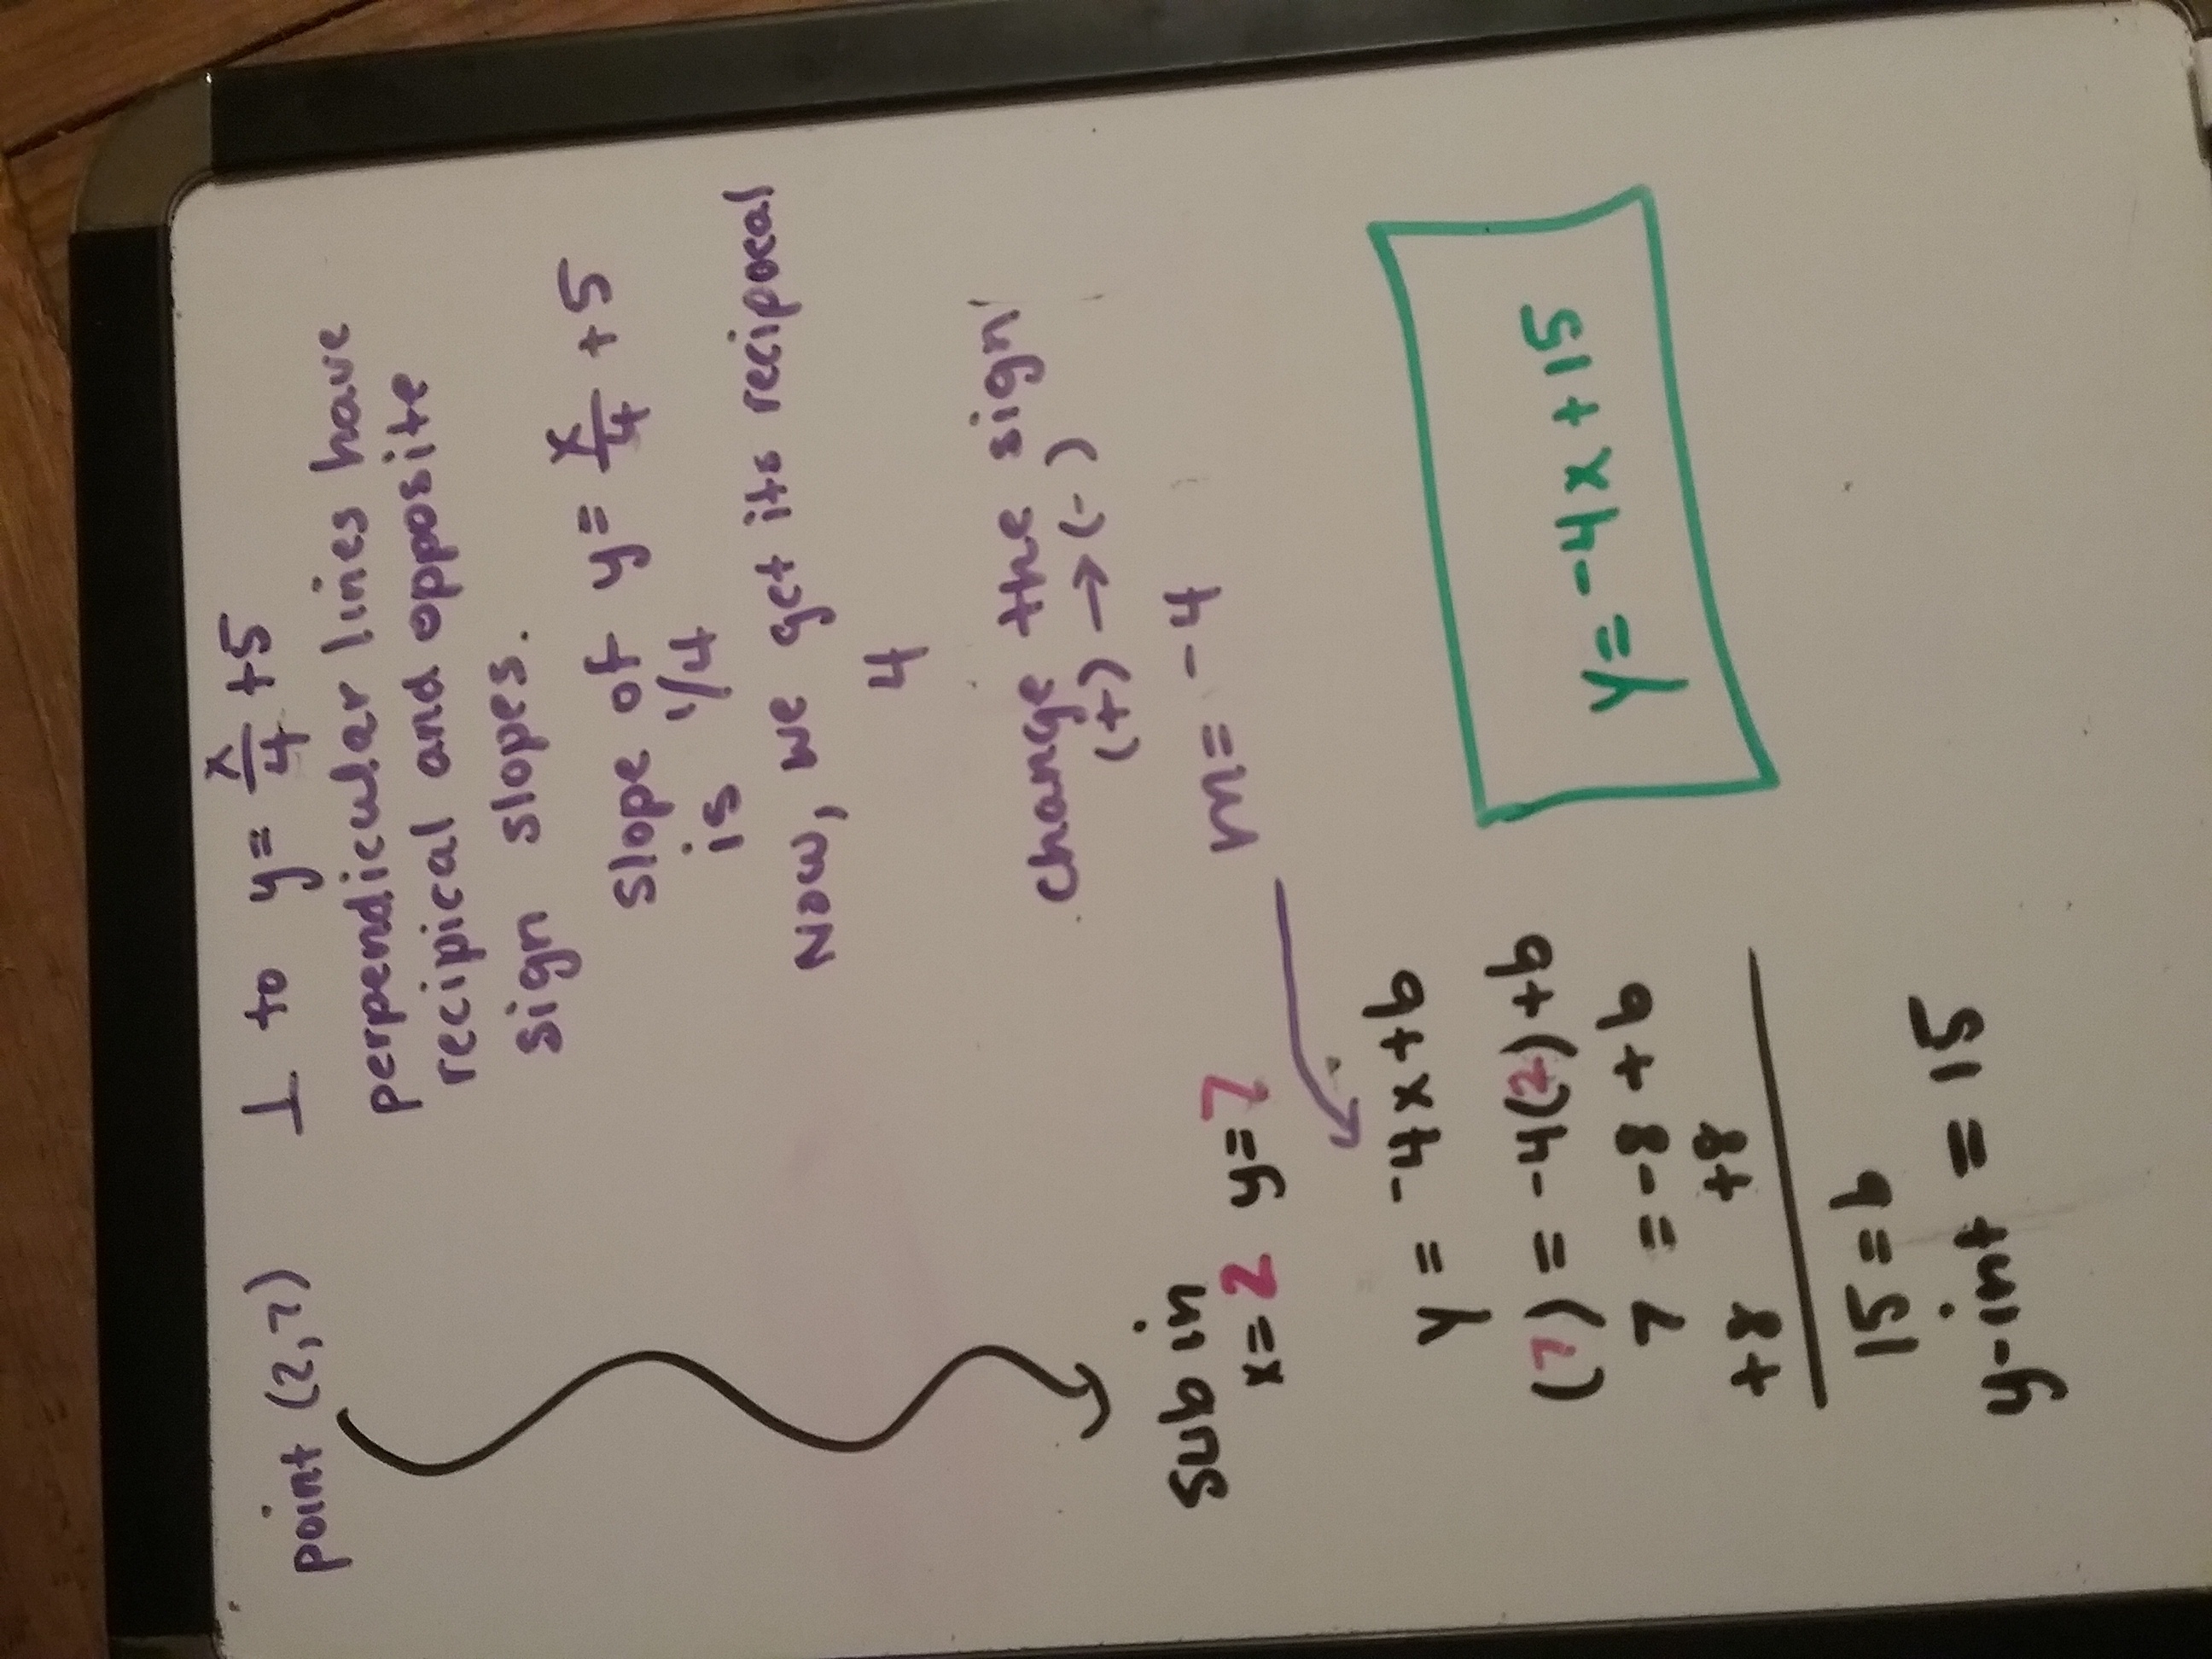 point (2,7) ⊥ to y= x/4 +5
perpendicular lines have
recipical and opposite
sign slopes.
slope of y= x/4 +5
is 1/4
Now, we get its reciporal
4
change the sign
(+) → (-)
m= -4
sub in
x=2 y=7
y = -4x+b
(7) = -4(2)+b
7 = -8 + b
+8 +8
15 = b
y-int = 15
y= -4x + 15